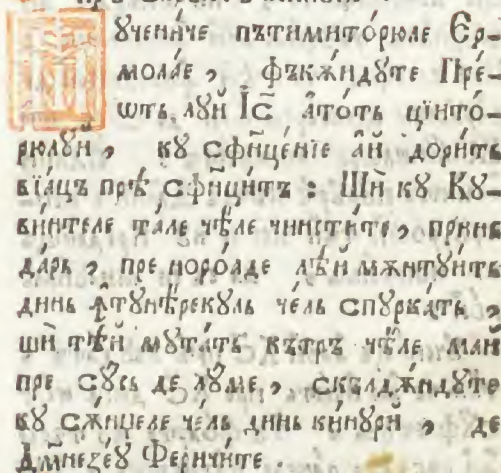 Мꙋчени́че пъти́миторюле Єр-
мола́е , фъкѫ́ндꙋте Пре́-
ѡтъ, лꙋй І҆с҃ а҆то́тъ цїито́-
рюлꙋ́й , кꙋ сфи҃це́нїе а҆й дори́тъ
вїа́ца прѣ́ сфи҃ци́тъ : Шѝ кꙋ Кꙋ-
ви́нтеле та́ле чѣ́ле чинсти́те , при́нь
да́рь , пре норо́аде лѣ́й мѫнтꙋи́тъ
динь ꙟтꙋнѣ́рекꙋль че́ль спꙋрка́тъ ,
шѝ тѣ́й мꙋта́тъ ка́тръ чѣ́ле май
пре сꙋ́сь де лꙋ́ме , скълдѫ́ндꙋте
кꙋ сѫ́нџеле че́ль динь ки́нꙋрй , де
Дꙋ́мнеѕеꙋ Феричи́те